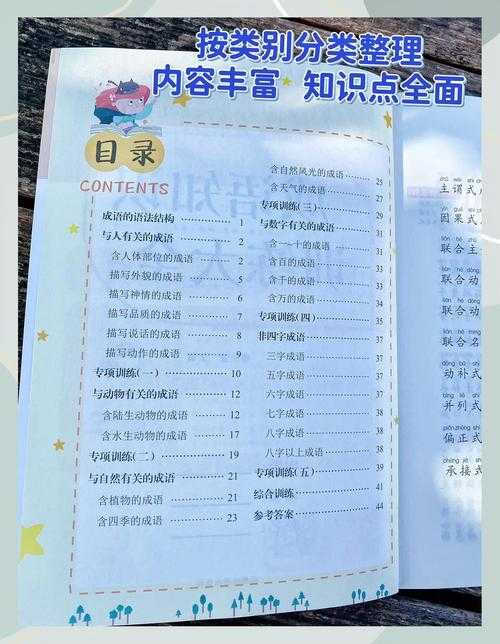 按类别分类整理
内容丰富 知识点全面
目录
CONTENTS
成语的语法结构 1
与人有关的成语 2
含人体部位的成语 2
描写外貌的成语 5
描写神情的成语 6
描写品质的成语 7
描写说话的成语 8
描写动作的成语 9
专项训练(一) 10
与动物有关的成语 12
含陆生动物的成语 12
含水生动物的成语 17
专项训练(二) 19
与自然有关的成语 21
含植物的成语 21
含四季的成语 23
含自然风光的成语 25
含天气的成语 27
专项训练(三) 29
与数字有关的成语 31
含一~十的成语 31
含百的成语 33
含千的成语 34
含万的成语 35
专项训练(四) 35
非四字成语 37
三字成语 37
五字成语 37
六字成语 37
七字成语 38
八字成语 38
八字以上成语 38
专项训练(五) 39
综合训练 41
参考答案 44
主谓式
因果式
联合主
联合动
联合名
动补式
并列式
偏正式
承接式